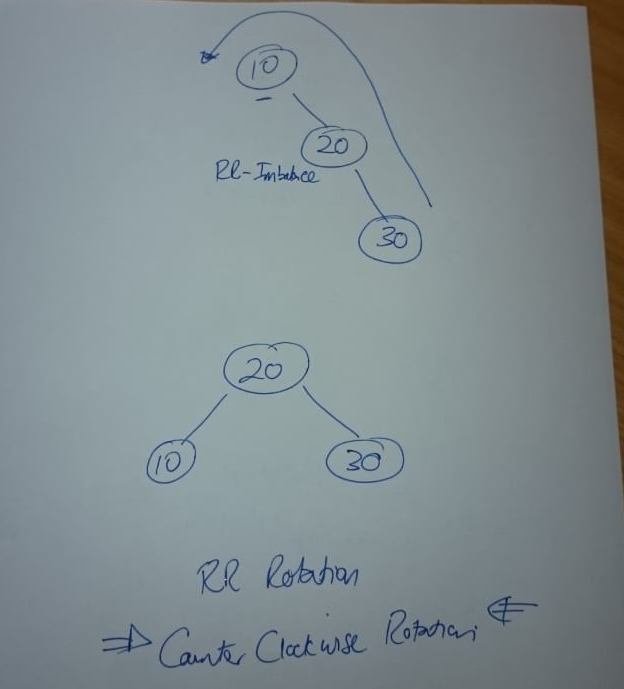 10
20
RR-Imbalance
30
20
10
30
RR Rotation
⇒ Counter Clockwise Rotation ⇐